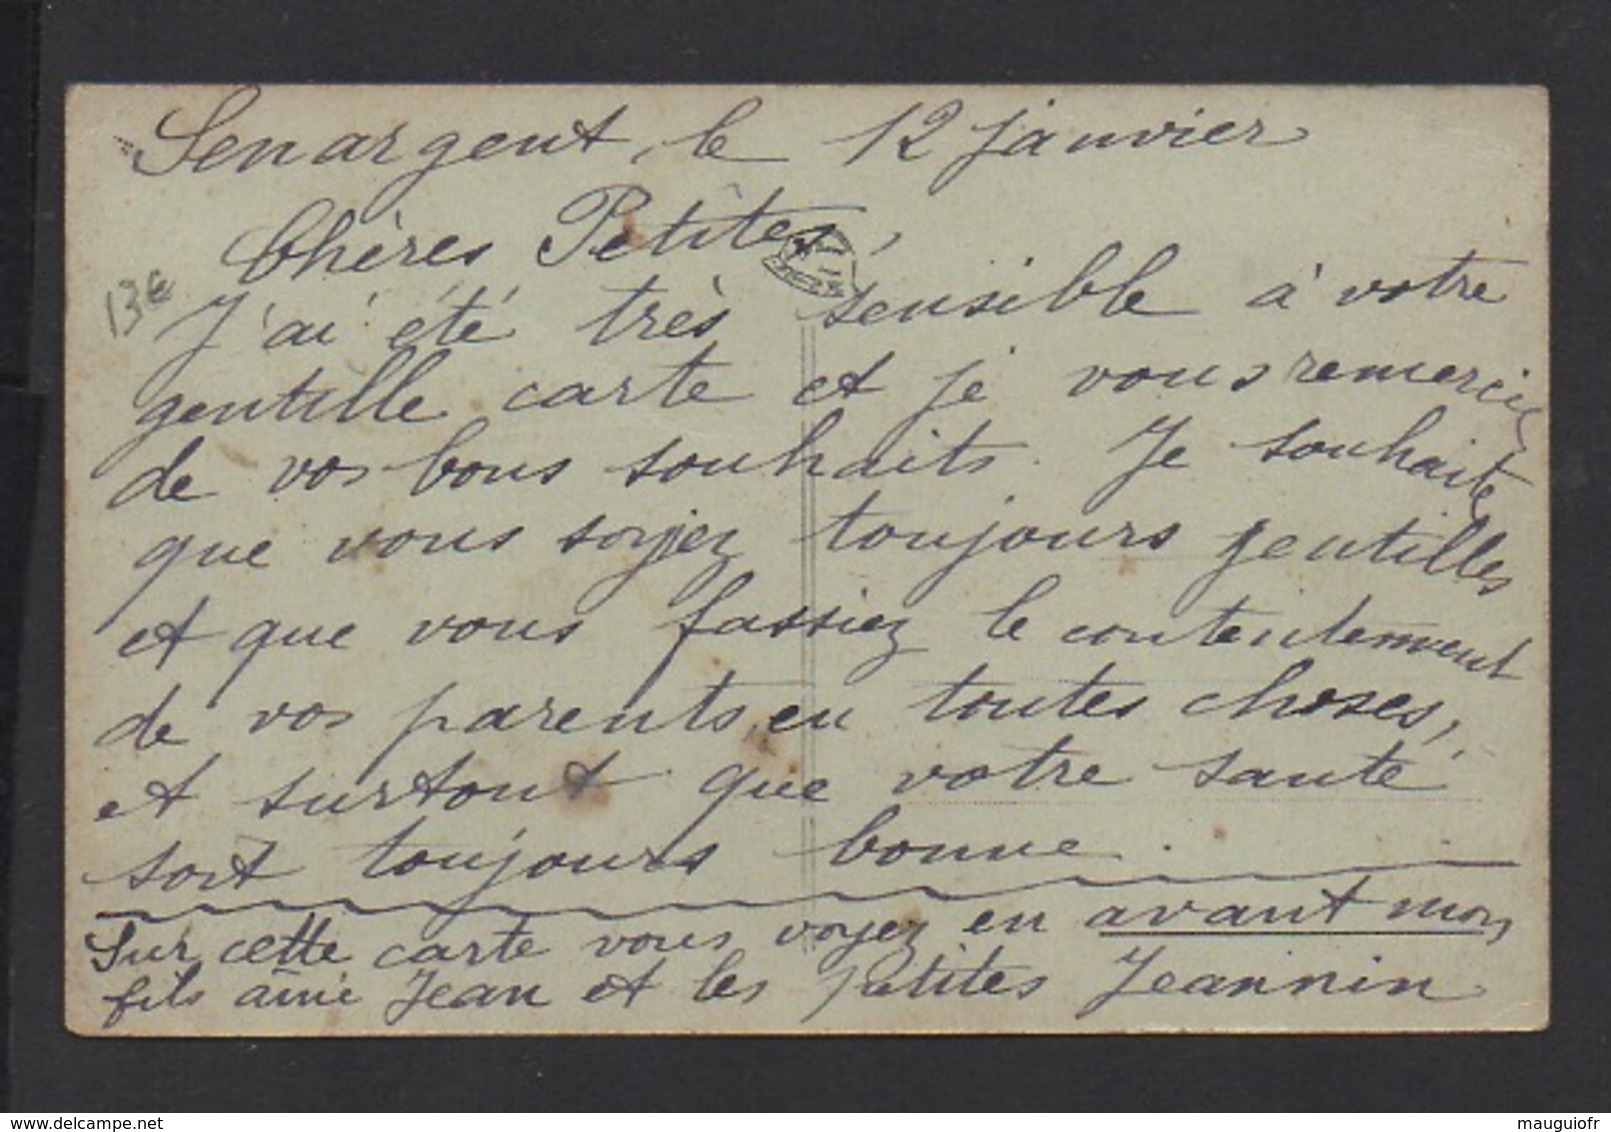 Senargent, le 12 janvier
Chères Petites,
13€
J'ai été très sensible à votre
gentille carte et je vous remercie
de vos bons souhaits. Je souhaite
que vous soyiez toujours gentilles
et que vous fassiez le contentement
de vos parents, en toutes choses,
et surtout que votre santé
soit toujours bonne.
Sur cette carte vous voyez en avant mon
fils aîné Jean et les petites Jeannin
www.delcampe.net
mauguiofr